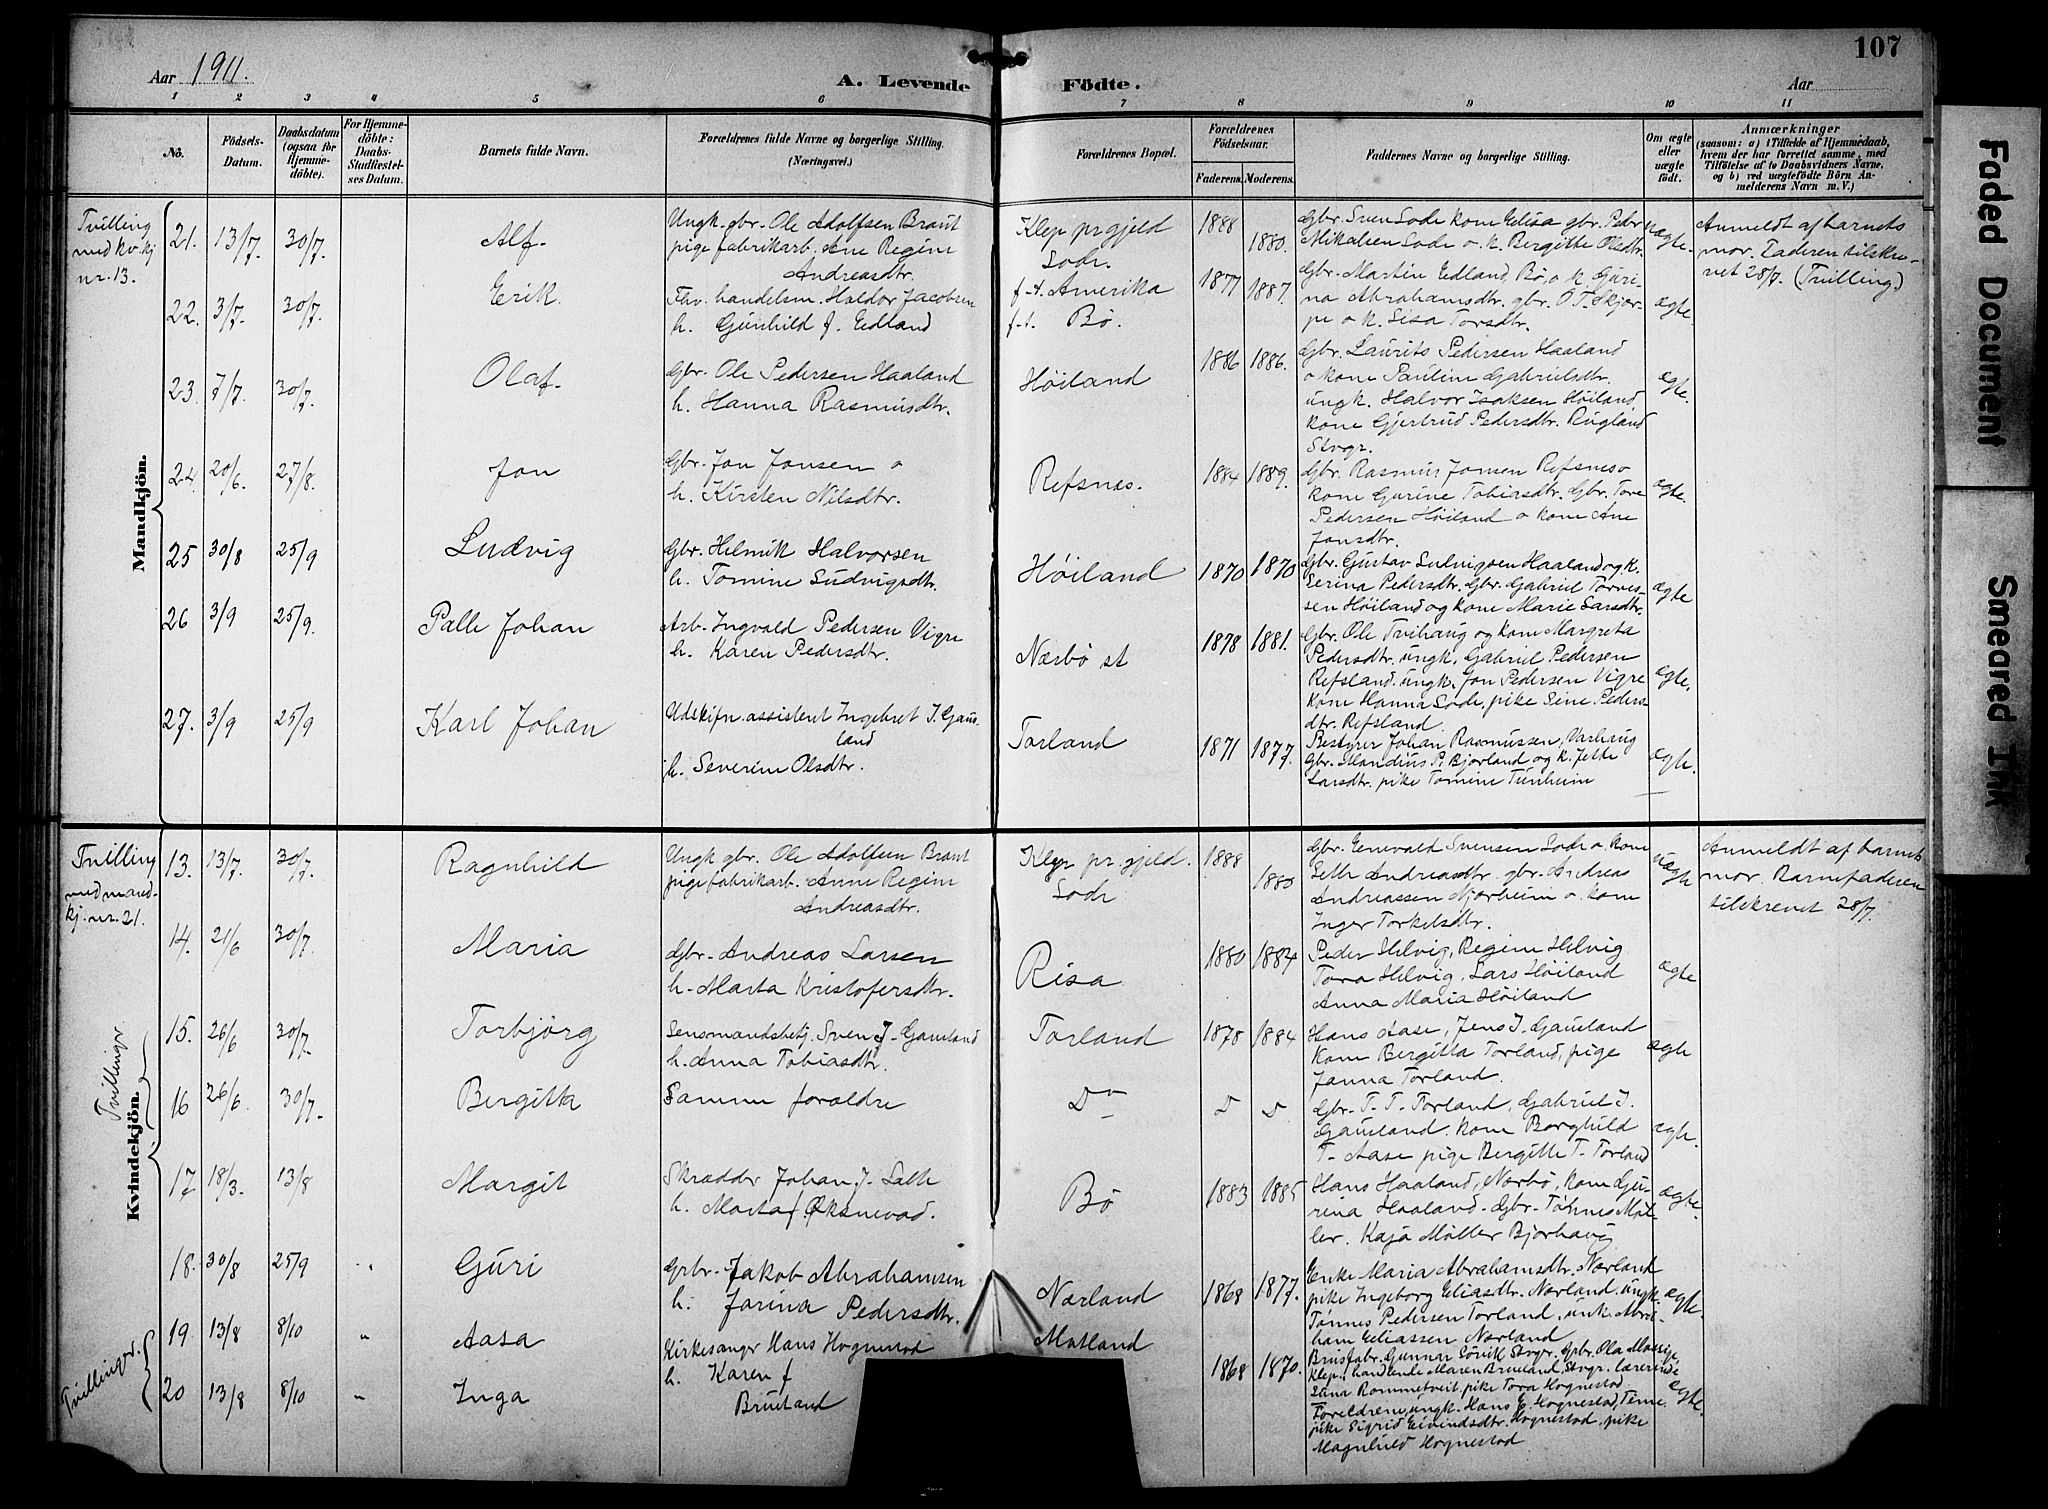 107
Aar 1911.
A. Levende Födte.
Aar
1 2 3 4 5 6 7 8 9 10 11
No.
Födsels-Datum.
Daabsdatum (ogsaa for Hjemme-döbte).
For Hjemme-döbte: Daabs-Stadfæstel-ses Datum.
Barnets fulde Navn.
Forældrenes fulde Navne og borgerlige Stilling.
(Næringsvei.)
Forældrenes Bopæl.
Forældrenes Födselsaar.
Faderens. Moderens.
Faddernes Navne og borgerlige Stilling.
Om ægte eller uægte födt.
Anmærkninger
(saasom: a) i Tilfælde af Hjemmedaab,
hvem der har forrettet samme, med
Tilföielse af to Daabsvidners Navne,
og b) ved uægtefödte Börn An-
melderens Navn m. V.)
Mandkjön.
Tvilling
med kv. kj
nr. 13.
21. 13/7. 30/7. Alf.
Ungk. gbr. Ole Adolfsen Braut
pige fabrikarb. Ane Regine
Andreasdtr.
Klep pr.gjeld
Lode.
1888 1880.
Gbr. Sven Lode kone Elisa gbr. Peder
Mikalsen Lode o. k. Bergitte Olsdtr.
uægte.
Anmeldt af barnets
mor. Faderen tilskre-
vet 28/7. (Tvilling.)
22. 3/7. 30/7. Erik.
Fhv. handelsm. Haldor Jacobsen
h. Gunhild f. Edland
f. t. Amerika
f. t. Bø.
1877 1887.
Gbr. Martin Edland, Bø, o k Guri-
na Abrahamsdtr. gbr. O. T. Skjær-
pe o k. Lisa Torsdtr.
ægte.
23. 7/7. 30/7. Olaf.
Gbr. Ole Pedersen Haaland
h. Hanna Rasmusdtr.
Høiland
1886 1886.
Gbr. Laurits Pedersen Haaland
o kone Pauline Gabrielsdtr.
ungk. Halvor Isaksen Høiland,
kone Gjertrud Pedersdtr. Rugland
Stvgr.
ægte.
24. 20/6. 27/8. Jon
Gbr. Jon Jonsen o
h. Kirsten Nilsdtr.
Refsnes.
1884 1889.
Gbr. Rasmus Jonsen Refsnes o
kone Gurine Tobiasdtr. Gbr. Tore
Pedersen Høiland o kone Ane
Jonsdtr.
ægte.
25 30/8 25/9 Ludvig
Gbr. Helmik Halvorsen
h. Tomine Ludvigsdtr.
Høiland
1870 1870
Gbr. Gustav Ludvigsen Haaland og k.
Serina Pedersdtr. Gbr. Gabriel Tønnes-
sen Høiland og kone Marie Larsdtr.
ægte
26 3/9 25/9. Palle Johan
Arb. Ingvald Pedersen Vigre
h. Karen Pedersdtr.
Nærbø st
1878 1881.
Gbr. Ole Tvihaug og kone Margreta
Pedersdtr. ungk. Gabriel Pedersen
Refsland. ungk. Jon Pedersen Vigre
kone Hanna Lode, pike Sine Peders-
dtr. Refsland
ægte.
27. 3/9 25/9 Karl Johan
Udskiftn. assistent Ingebret J. Gaus-
land
h. Severine Olsdtr.
Torland
1871 1877.
Bestyrer Johan Rasmussen, Varhaug
Gbr. Mandius P. Bjorland og k. Jette
Larsdtr. pike Tomine Tunheim
ægte.
Kvindekjön.
Tvilling
med mand-
kj. nr. 21.
13. 13/7. 30/7. Ragnhild
Ungk gbr. Ole Adolfsen Braut
pige fabrikarb. Anne Regine
Andreasdtr.
Klep pr. gjeld.
Lode
1888 1880
Gbr. Enevald Svensen Lode o. kone
Lethe Andreasdtr. gbr. Andreas
Andreassen Njorheim o. kone
Inger Torkelsdtr.
uægte
Anmeldt af barnets
mor. Barnefaderen
tilskrevet 28/7.
14. 21/6 30/7. Maria
Gbr. Andreas Larsen
h. Marta Kristofersdtr.
Risa
1880 1884
Peder Helvig, Regine Helvig
Tora Helvig. Lars Høiland
Anna Maria Høiland
ægte
Tvillinger.
15. 26/6 30/7. Torbjørg
Lensmandsbetj. Sven J. Gausland
h. Anna Tobiasdtr.
Torland
1878 1884
Hans Aase, Jens J. Gausland
Kone Bergitta Torland, pige
Janna Torland.
ægte
16 26/6. 30/7. Bergitta
Samme foraldre
Do D D
Gbr. T. T. Torland, Gabriel J.
Gausland. kone Borghild
T. Aase pige Bergitte T. Torland
ægte.
17 18/3. 13/8 Margit
Skrædder Johan J. Salte
h. Marta f. Øksnevad.
Bø
1883 1885
Hans Haaland, Nærbø, kone Gu-
rina Haaland. Gbr. Tønnes Møl-
ler. Kaja Møller Bjorhaug
ægte.
18. 30/8 25/9 Guri
Gbr. Jakob Abrahamsen
h. Jorina Pedersdtr.
Nærland
1868 1877.
Enke Maria Abrahamsdtr. Nærland
pike Ingeborg Eliasdtr. Nærland. ungk.
Tønnes Pedersen Torland, unk. Abra-
ham Eliassen Nærland
ægte.
Tvillinger.
19 13/8 8/10 " Aasa
Kirkesanger Hans Hognestad
h. Karen f
Bruland
Motland
1868 1870.
20 13/8 8/10 " Inga
Brusfabr. Gunnar Stvgr. Gbr. Ola
Klep. handlende Maren Bruland Stvgr. lærerinde
Rommetveit pike Tora Hognestad
Foreldrene, ungk. Hans E. Hognestad, Time
pike Sigrid Eivindsdtr. Hognestad, pike
Magnhild Hognestad
ægte.
Faded Document
Smeared Ink